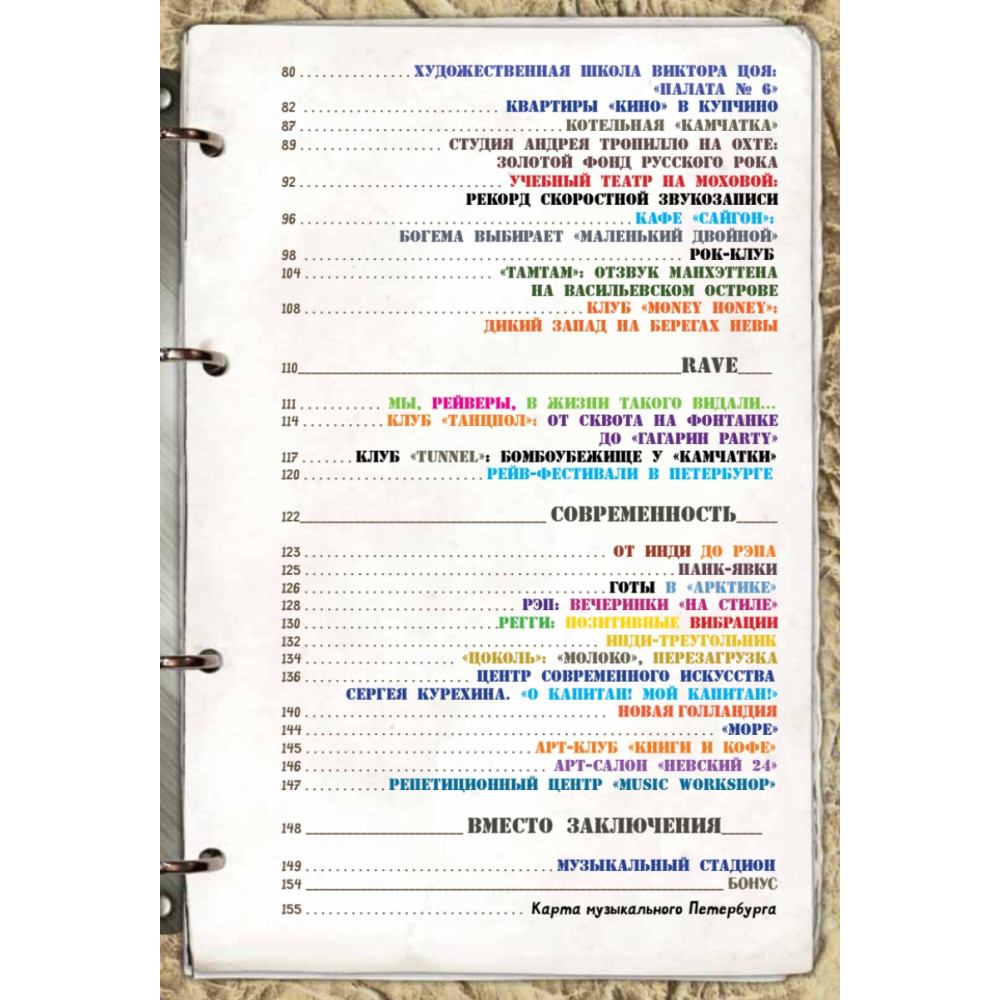 80 ............... ХУДОЖЕСТВЕННАЯ ШКОЛА ВИКТОРА ЦОЯ:
«ПАЛАТА № 6»
82 ............... КВАРТИРЫ «КИНО» В КУПЧИНО
87 ............... КОТЕЛЬНАЯ «КАМЧАТКА»
89 ............... СТУДИЯ АНДРЕЯ ТРОПИЛЛО НА ОХТЕ:
ЗОЛОТОЙ ФОНД РУССКОГО РОКА
92 ............... УЧЕБНЫЙ ТЕАТР НА МОХОВОЙ:
РЕКОРД СКОРОСТНОЙ ЗВУКОЗАПИСИ
96 ............... КАФЕ «САЙГОН»:
БОГЕМА ВЫБИРАЕТ «МАЛЕНЬКИЙ ДВОЙНОЙ»
98 ............... РОК-КЛУБ
104 ............... «ТАМТАМ»: ОТЗВУК МАНХЭТТЕНА
НА ВАСИЛЬЕВСКОМ ОСТРОВЕ
108 ............... КЛУБ «MONEY HONEY»:
ДИКИЙ ЗАПАД НА БЕРЕГАХ НЕВЫ
110_______________RAVE_____
111 ............... МЫ, РЕЙВЕРЫ, В ЖИЗНИ ТАКОГО ВИДАЛИ...
114 ............... КЛУБ «ТАНЦПОЛ»: ОТ СКВОТА НА ФОНТАНКЕ
ДО «ГАГАРИН PARTY»
117 ....... КЛУБ «TUNNEL»: БОМБОУБЕЖИЩЕ У «КАМЧАТКИ»
120 ............... РЕЙВ-ФЕСТИВАЛИ В ПЕТЕРБУРГЕ
122_______________ СОВРЕМЕННОСТЬ_____
123 ............... ОТ ИНДИ ДО РЭПА
125 ............... ПАНК-ЯВКИ
126 ............... ГОТЫ В «АРКТИКЕ»
128 ............... РЭП: ВЕЧЕРИНКИ «НА СТИЛЕ»
130 ............... РЕГГИ: ПОЗИТИВНЫЕ ВИБРАЦИИ
132 ............... ИНДИ-ТРЕУГОЛЬНИК
134 ............... «ЦОКОЛЬ»: «МОЛОКО», ПЕРЕЗАГРУЗКА
136 ............... ЦЕНТР СОВРЕМЕННОГО ИСКУССТВА
СЕРГЕЯ КУРЕХИНА. «О КАПИТАН! МОЙ КАПИТАН!»
140 ............... НОВАЯ ГОЛЛАНДИЯ
144 ............... «МОРЕ»
145 ............... АРТ-КЛУБ «КНИГИ И КОФЕ»
146 ............... АРТ-САЛОН «НЕВСКИЙ 24»
147 ........... РЕПЕТИЦИОННЫЙ ЦЕНТР «MUSIC WORKSHOP»
148 _______________ ВМЕСТО ЗАКЛЮЧЕНИЯ_____
149 ............... МУЗЫКАЛЬНЫЙ СТАДИОН
154 _______________ БОНУС
155 ............... Карта музыкального Петербурга